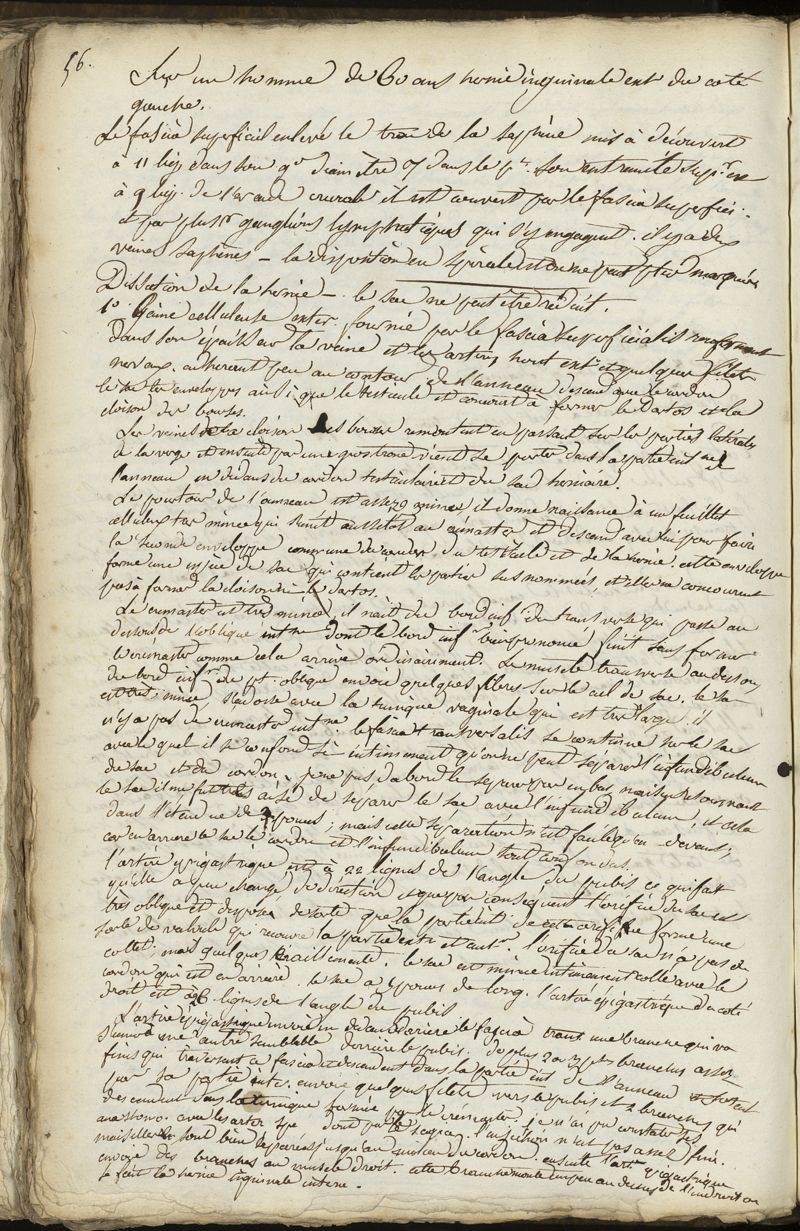 56.
Sur un homme de 60 ans hernie inguinale ext du coté
gauche.
Le fascia superficiel enlevé le trou de la saphène mis à découvert
à 11 lig. dans son gd diamètre 7 dans le pt. son extremité supre est
à 9 lig. de l'arcade crurale il est couvert par le fascia superficiel
et par plusrs ganglions lymphatiques qui s'y engagent. il y a deux
veines saphènes – la disposition en spirale est on ne peut plus marquée
Dissection de la hernie – le sac ne peut être réduit.
1o Gaine celluleuse exter. fournie par le fascia superficialis renfermant
dans son épaisseur la veine et les artères hont. ext. et quelques filets
nerveux. adherent peu au contour de l'anneau descend avec le cordon
les enveloppes ainsi que le testicule et concourt à former le Dartos et la
cloison des bourses.
Les veines de la cloison des bourses remontent en passant sur les parties latérales
de la verge et ensuite par une gros tronc vient se porter dans la partie int. de
l'anneau en dedans du cordon testiculaire et du sac herniaire.
Le pourtour de l'anneau est assez mince, il donne naissance à un feuillet
celluleux tres mince qui s'unit aussitôt au cremaster et descend avec lui pour faire
la seconde enveloppe commune du cordon, du testicule et de la hernie; cette enveloppe
forme une espece de sac qui contient les parties susnommées, et elle ne concourent
pas à former la cloison ni le Dartos.
Le cremaster est tres mince, il naît du bord inf. du transverse qui passe au
dessous de l'oblique inte dont le bord inf. bien prononcé, finit sans former
le cremaster comme cela arrive ordinairement. Le muscle transverse au dessous
du bord infr. du pt. oblique envoie quelques fibres sur le col du sac. le sac
est très mince, s'adosse avec la tunique vaginale qui est très large. il
n'y a pas de cremaster inte. le fascia transversalis se continue sur le sac
avec lequel il se confond si intimement qu'on ne peut separer l'infundibulum
du sac et du cordon. je ne pus d'abord le separer par en bas, mais en retournant
le sac il me fut très aisé de séparer le sac avec l'infundibulum, et cela
dans l'étendue de pouces; mais cette séparation n'est facile qu'en devant;
car en arriere le sac le cordon et l'infundibulum sont confondus.
l'artere epigastrique est à 22 lignes de l'angle du pubis ce qui fait
qu'elle a peu changé de direction et que par consequent l'orifice du sac est
très oblique et disposé de sorte que la partie int. de cet orifice forme une
sorte de valvule qui recouvre la partie ext. et ant. l'orifice du sac n'a pas de
collet, mais quelques tiraillements. le sac est mince intimement collé avec le
cordon qui est en arriere. le sac a pouces de long. l'artère epigastrique du coté
droit est à 26 lignes de l'angle du pubis
L'artère épigastrique envoie en dedans derrière le fascia trans. une branche qui va
s'unir à une autre semblable derrière le pubis. de plus 2 ou 3 ptes branches assez
fines qui traversent ce fascia et descendent dans la partie int. de l'anneau
par sa partie inter. envoie quelques filets vers le pubis et 2 branches qui
descendent dans la tunique formée par le cremaster, je n'ai pu constater les
anastomo. avec les arter. spe. dont parle Scarpa. l'injection n'est pas assez fine.
mais elles sont bien séparées jusqu'au milieu du cordon. ensuite l'arte. epigastrique
envoie des branches au muscle droit. cette branche monte un peu au dessus de l'endroit où
se fait la hernie inguinale interne.